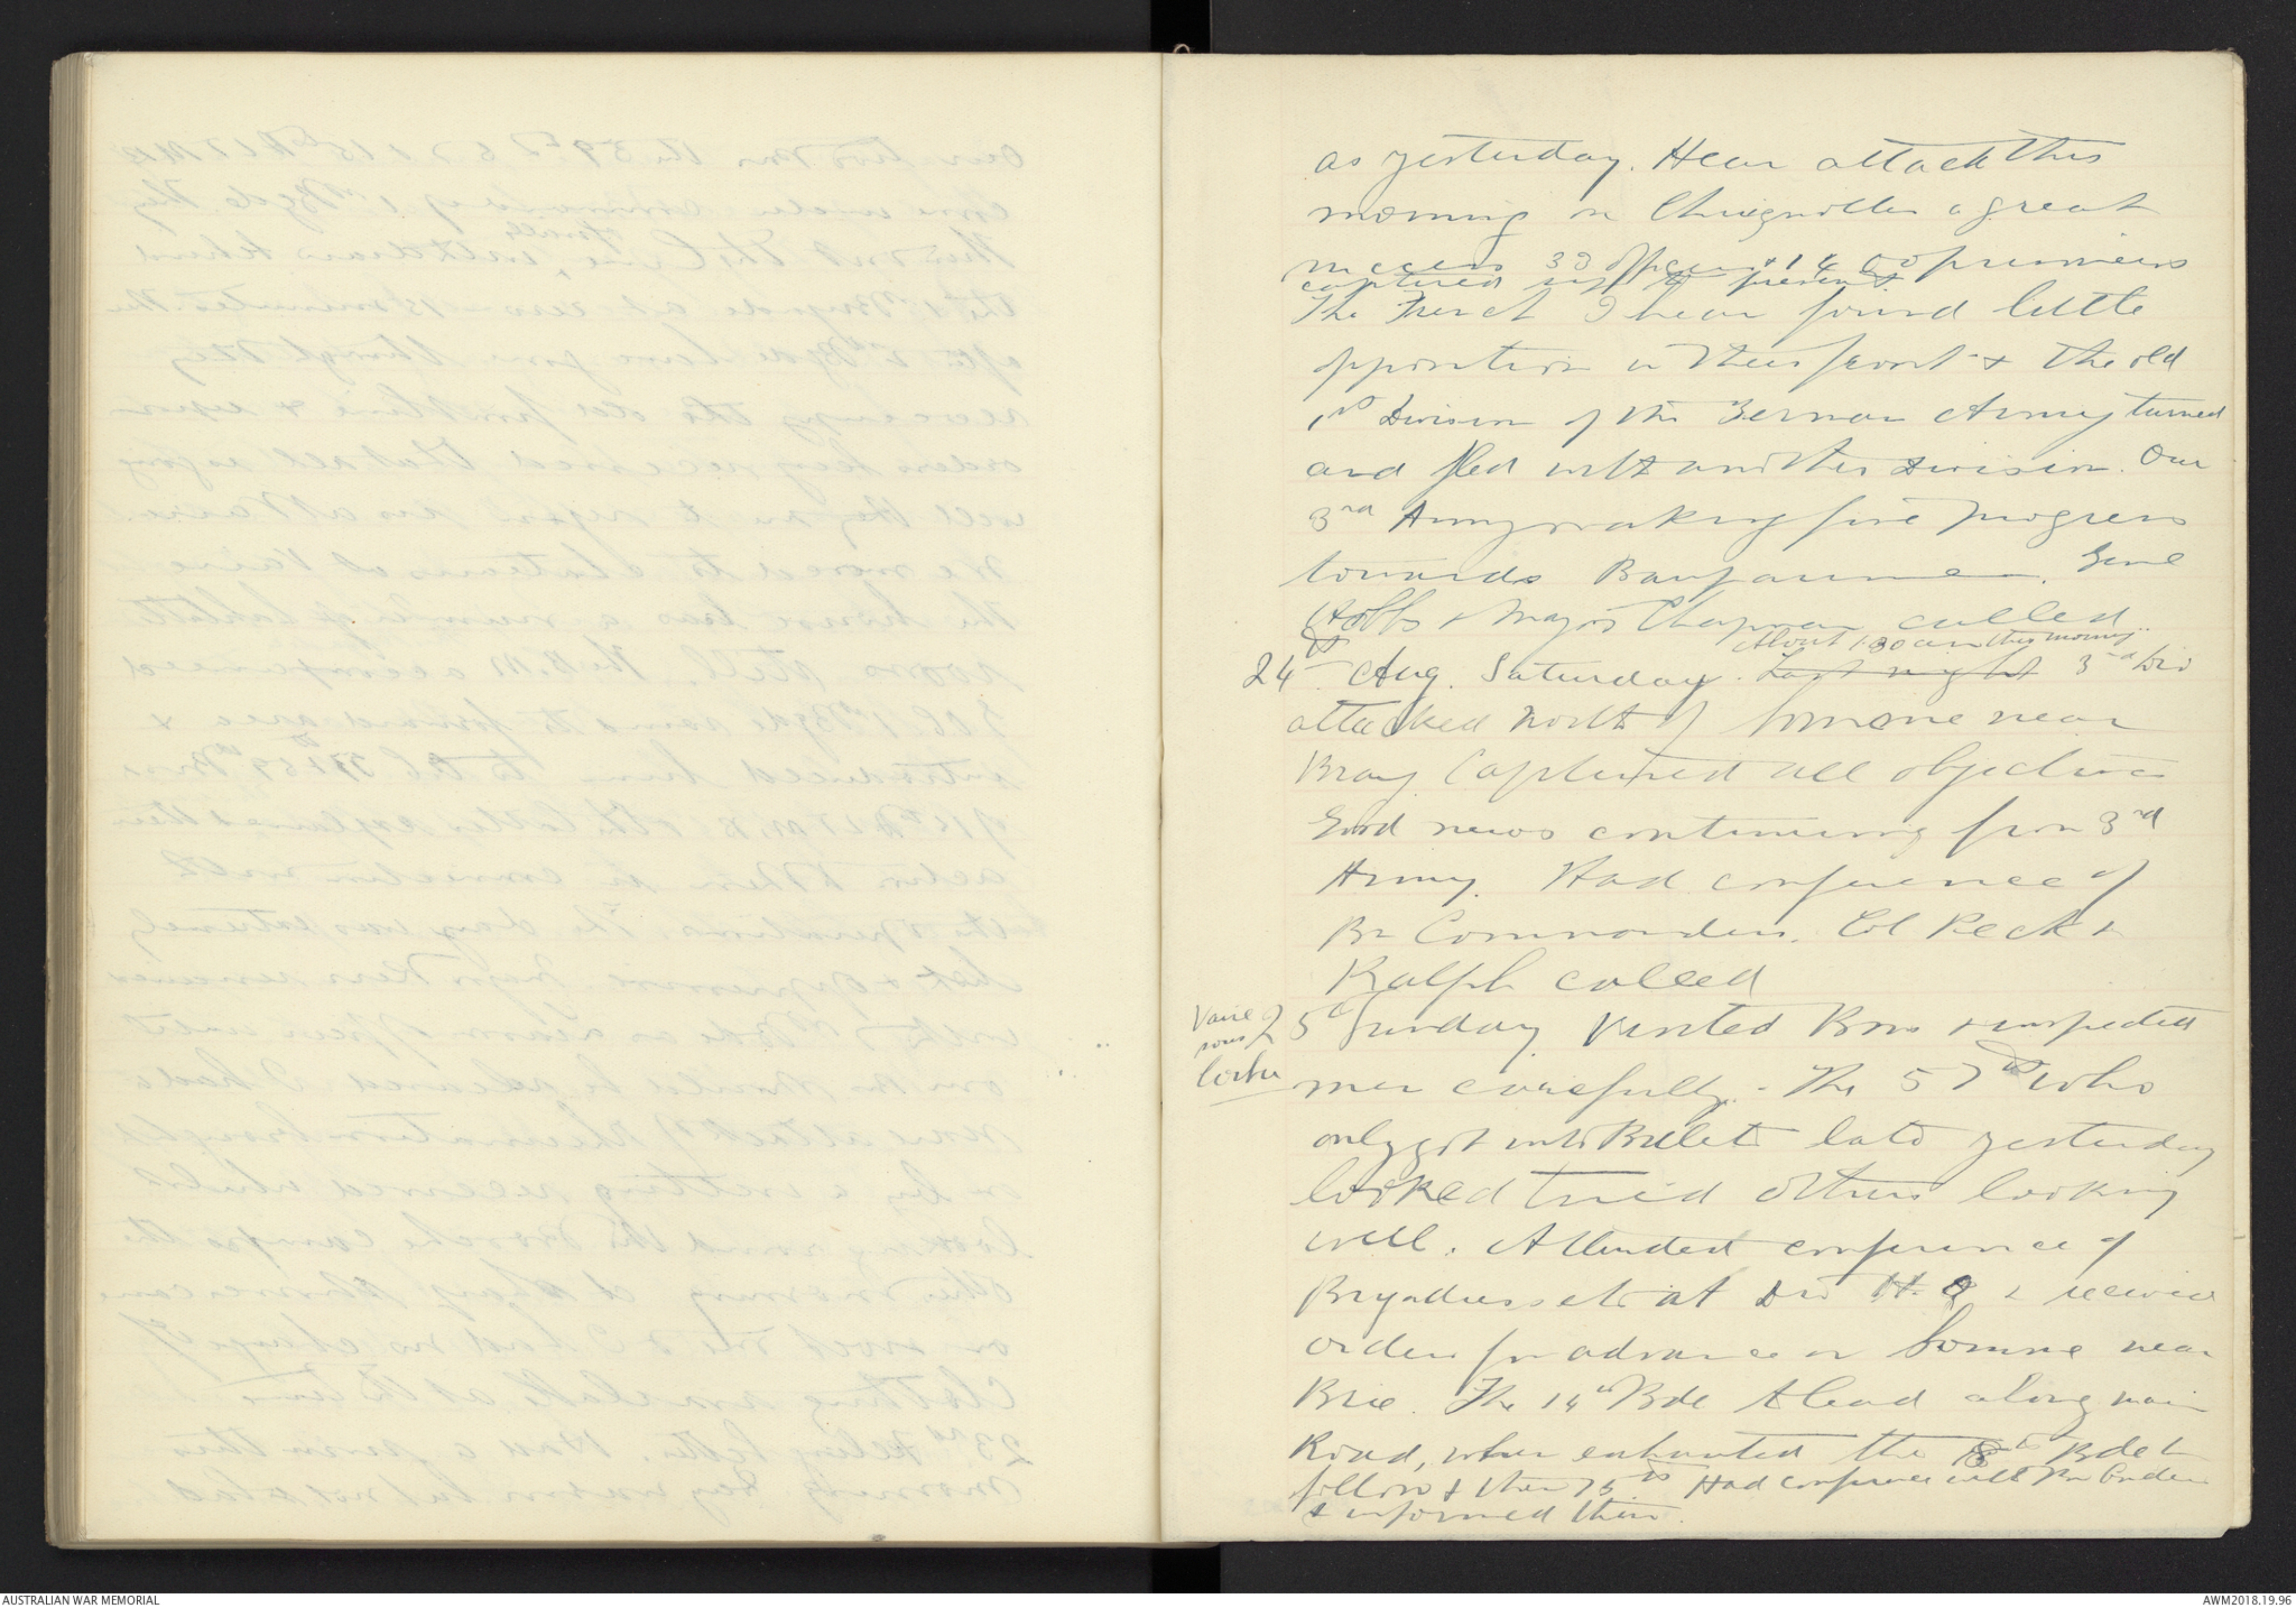 as yesterday. Hear attack this
morning on Chuignolles a great
success 33 officers & 1400 prisoners
captured up to present
The French I hear found little
opposition in their front & the old
1st Division of the German Army turned
and fled with another division. Our
3rd Army making fine progress
towards Baupaume. Genl
Hobbs & Major Chapman called.
about 1.30 am this morning
24th Aug. Saturday. Last night 3rd Div
attacked north of Somme near
Bray Captured all objectives
Good news continuing from 3rd
Army. Had conference of
Bn Commanders. Col Peck &
Ralph called
Vaire
sous
Corbie
25th Sunday Visited Bns & inspected
men carefully. The 57th who
only got into Billets late yesterday
looked tired others looking
well. Attended conference of
Brigadiers etc at Div H.Q & received
orders for advance on Somme near
Brie. The 14th Bde to lead along main
Road, when exhausted the 8th Bde to
follow & then 15th Had conference with Bn Comders
& informed them.
AUSTRALIAN WAR MEMORIAL
AWM2018.19.96